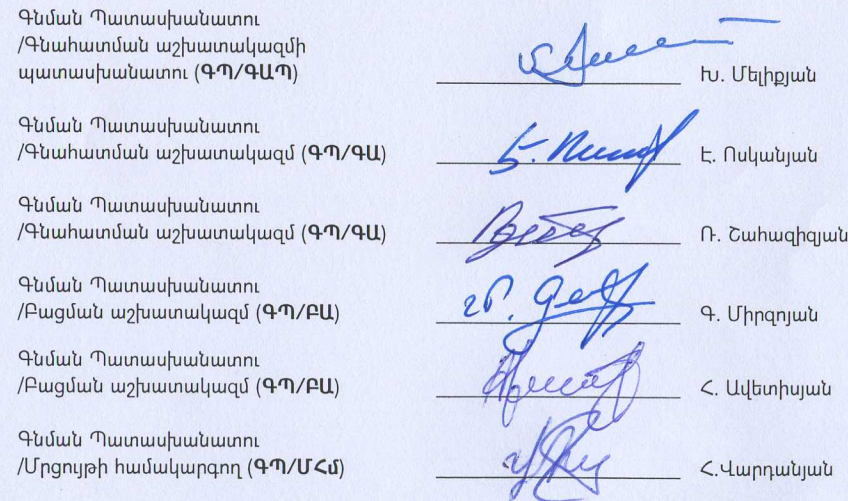 Գնման Պատասխանատու
/Գնահատման աշխատակազմի
պատասխանատու (ԳՊ/ԳԱՊ) Խ. Մելիքյան
Գնման Պատասխանատու
/Գնահատման աշխատակազմ (ԳՊ/ԳԱ) Է. Ոսկանյան
Գնման Պատասխանատու
/Գնահատման աշխատակազմ (ԳՊ/ԳԱ) Ռ. Շահազիզյան
Գնման Պատասխանատու
/Բացման աշխատակազմ (ԳՊ/ԲԱ) Գ. Միրզոյան
Գնման Պատասխանատու
/Բացման աշխատակազմ (ԳՊ/ԲԱ) Հ. Ավետիսյան
Գնման Պատասխանատու
/Մրցույթի համակարգող (ԳՊ/ՄՀմ) Հ.Վարդանյան